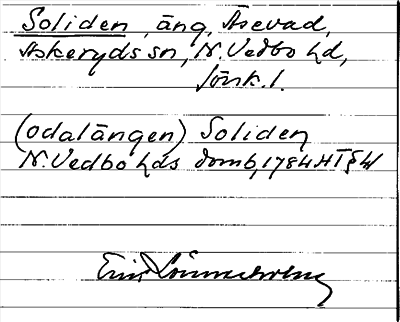 Soliden, äng, Åsevad,
Askeryds sn, N. Vedbo hd,
Jönk. l.
(odalängen) Soliden
N. Vedbo hds domb, 1784 HT § 41